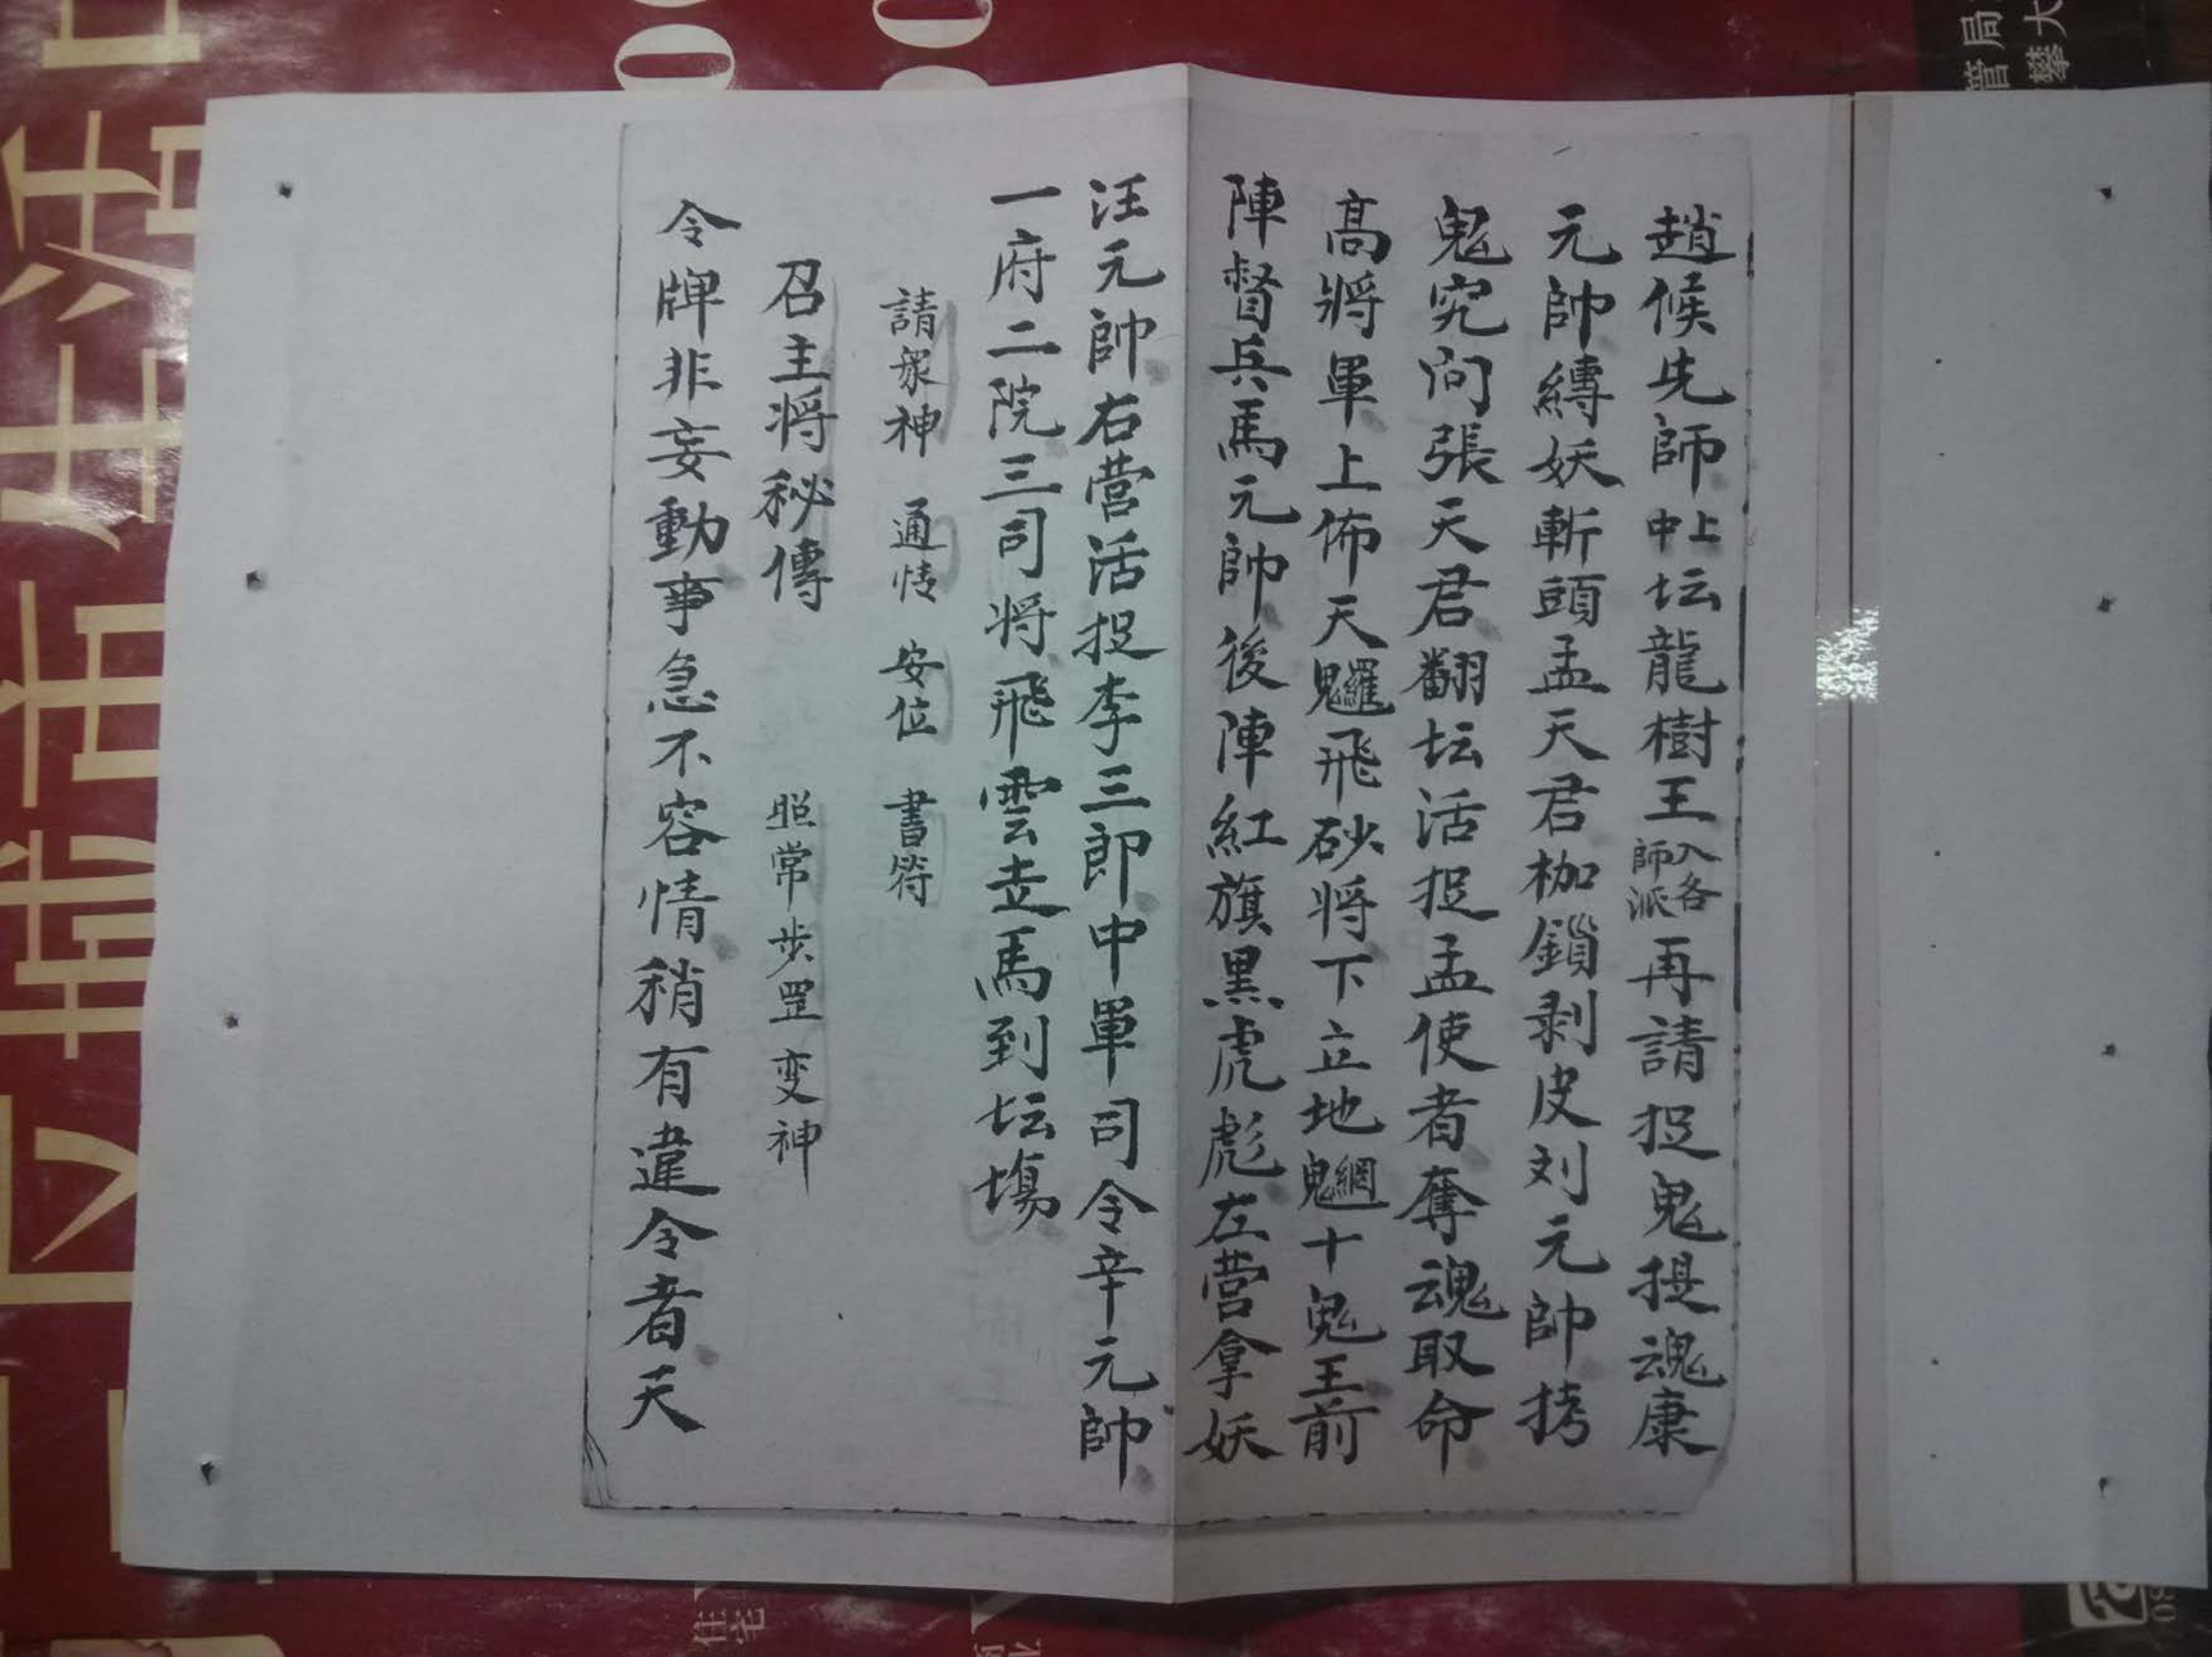 趙候先師中上坛龍樹王入各師派再請捉鬼提魂康
元帥縛妖斬頭孟天君枷鎖剥皮刘元帥拷
鬼究问張天君翻坛活捉孟使者奪魂取命
高將軍上佈天𩴺飛砂將下立地魍十鬼王前
陣督兵馬元帥後陣紅旗黑虎彪左营拿妖
汪元帥右营活捉李三郎中軍司令辛元帥
一府二院三司将飛雲走馬到坛塲
請眾神 通情 安位 書符
召主将秘傳 照常步罡变神
令牌非妄動事急不容情稍有違令者天